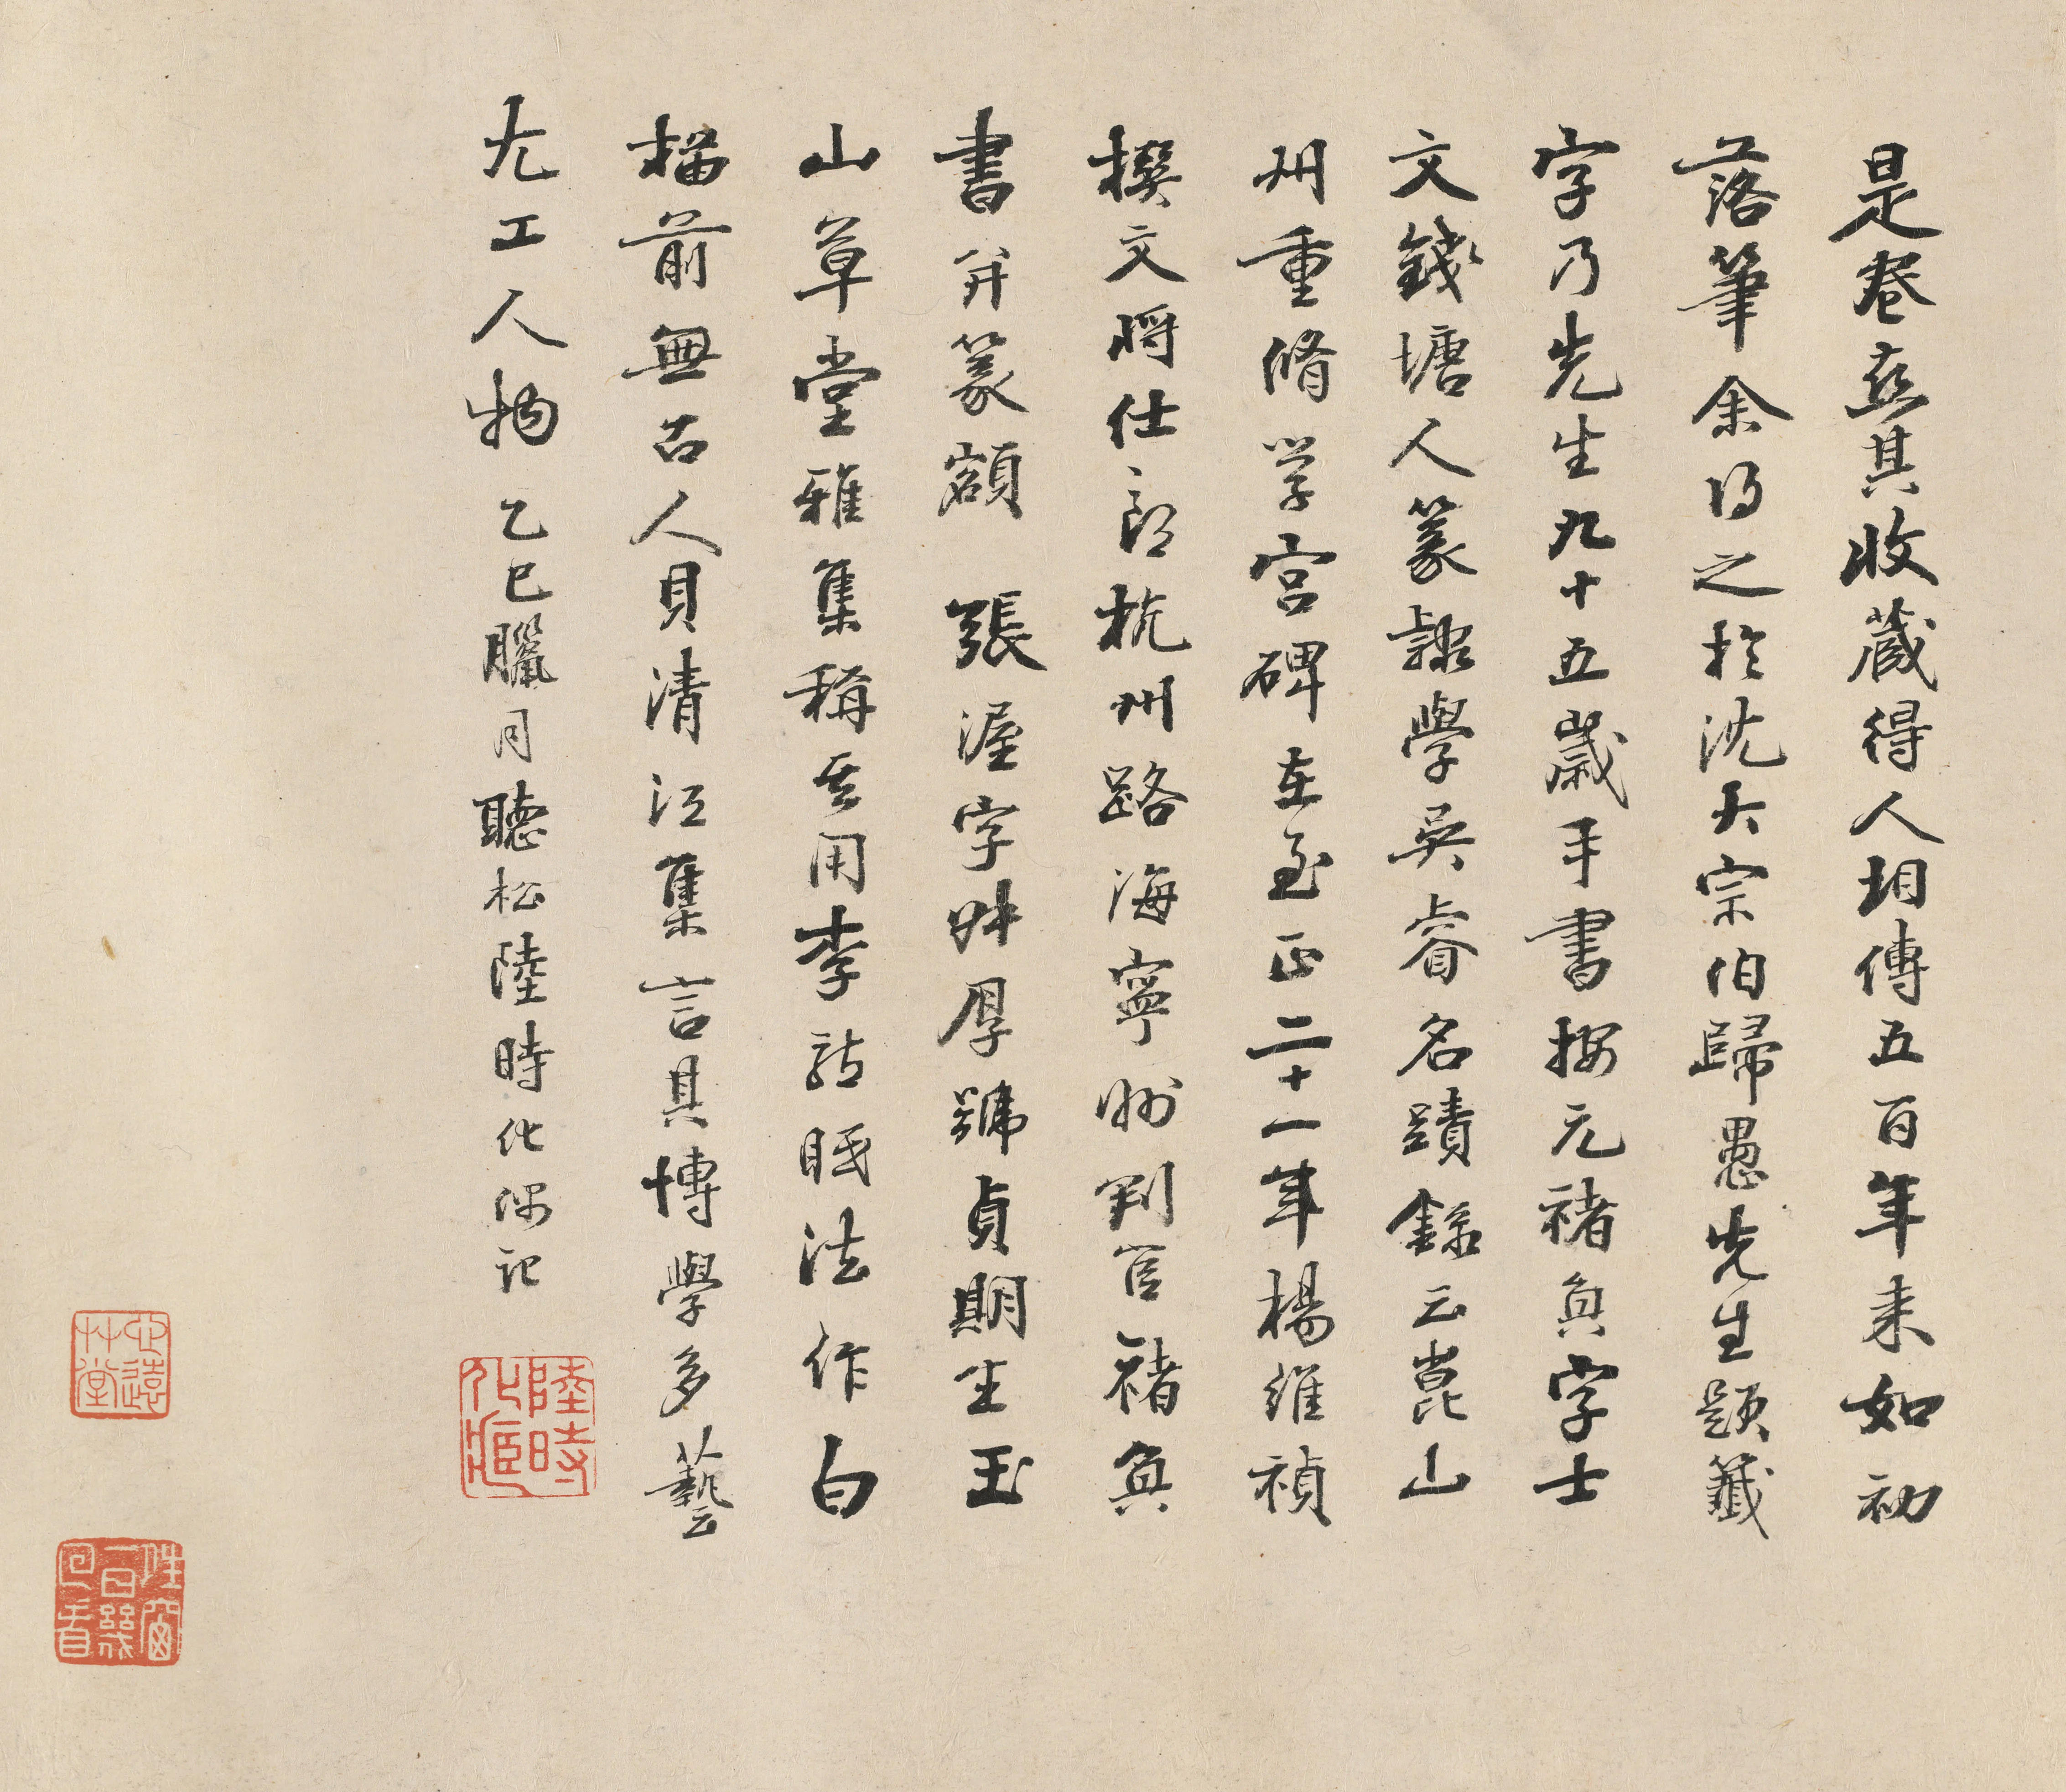 是卷蓋其收藏得人相傳五百年来如初
落筆余得之於沈大宗伯歸愚先生題籤
字乃先生九十五歲手書按元褚奐字士
文錢塘人篆隸學吳睿名蹟錄云崑山
州重脩学宫碑在至正二十一年楊維禎
撰文將仕郎杭州路海寧州判官褚奐
書并篆額 張渥字叔厚號貞期生玉
山草堂雅集稱其用李龍眠法作白
描前無古人貝清江集言其博學多藝
尤工人物 乙巳臘月聽松陸時化偶記
陸時化滙
心遠草堂